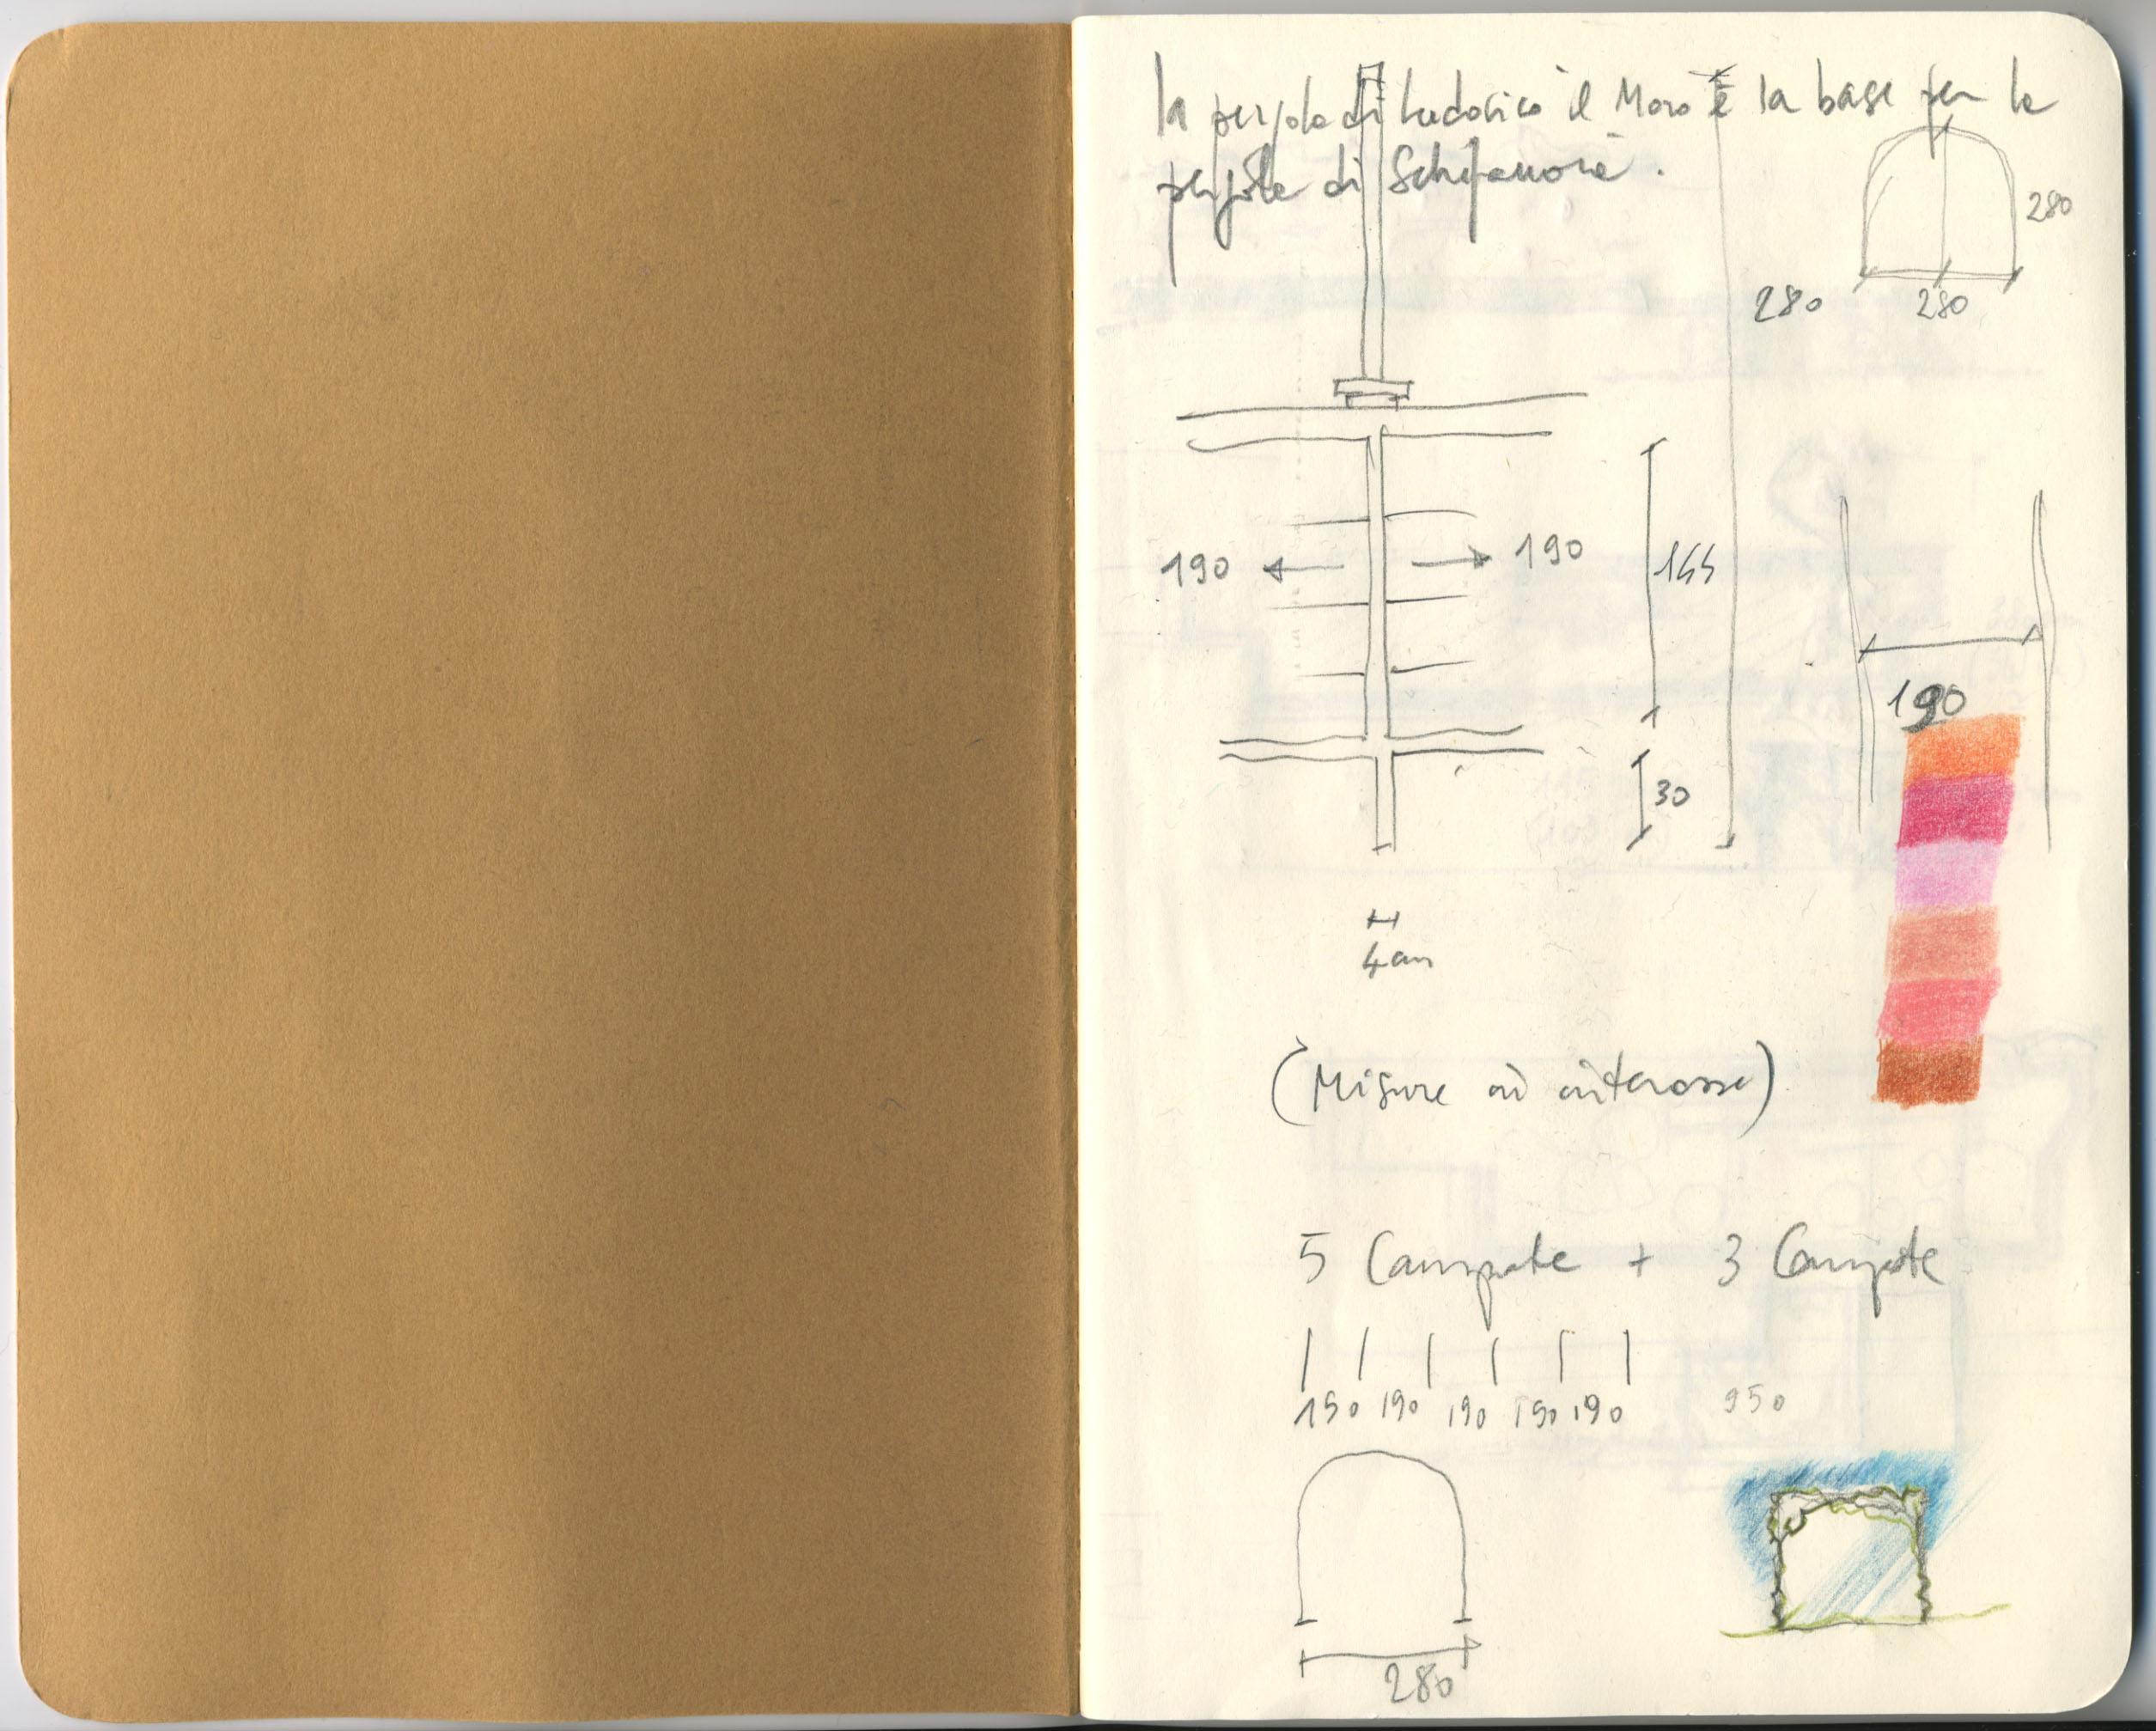 la pergola di Ludovico il Moro è la base per le
pergole di Schifanoia.
280
280
280
190
190
164
190
30
4cm
(Misure ad interasse)
5 Campate + 3 Campate
190 190 190 190 190
950
280